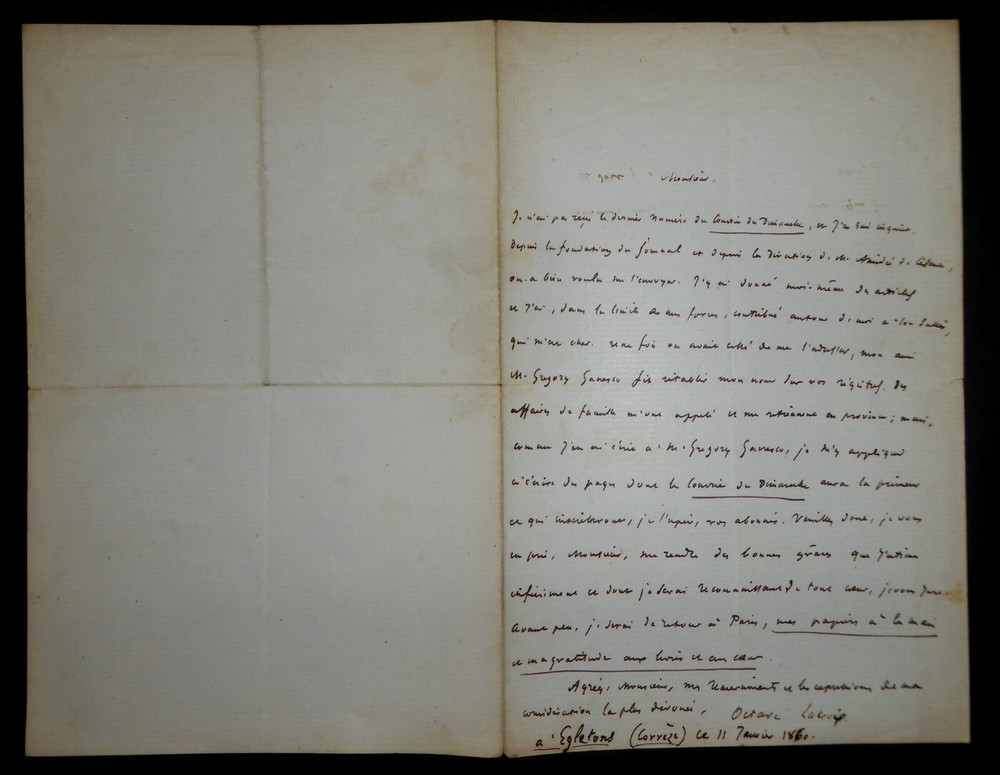 Monsieur.
Je n'ai pas reçu le dernier numéro du Courrier du Dimanche, et j'en suis inquiet.
Depuis la fondation du Journal et depuis la direction de M.
on a bien voulu me l'envoyer. J'y ai donné moi-même des articles
et j'ai, dans la limite de mes forces, contribué autour de moi à son succès,
qui m'est cher. Une fois on avait cessé de me l'adresser, mon ami
M. Gregory Ganesco fit rétablir mon nom sur vos registres. Des
affaires de famille m'ont appelé et me retiennent en province ; mais,
comme j'en ai écrit à M. Gregory Ganesco, je m'y applique
à écrire des pages dont le Courrier du Dimanche aura la primeur
et qui intéresseront, je l'espère, vos abonnés. Veuillez donc, je vous
en prie, Monsieur, me rendre des bonnes grâces que j'estime
infiniment et dont je serai reconnaissant de tout cœur, je vous jure.
Avant peu, je serai de retour à Paris, mes papiers à la main
et ma gratitude aux lèvres et au cœur.
Agréez, Monsieur, mes remerciements et les expressions de ma
considération la plus dévouée. Octave Lacroix
à Egletons (Corrèze) ce 11 Janvier 1860.